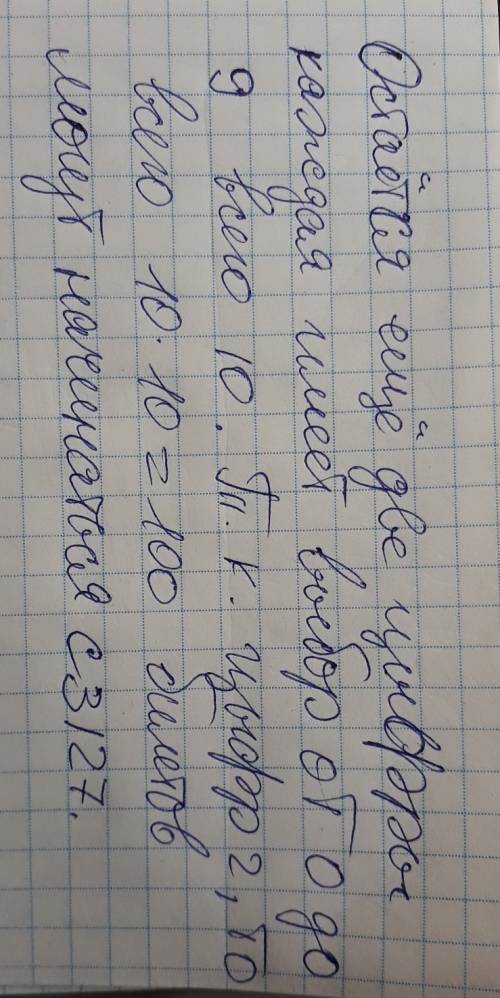 Остаётся ещё две цифры
каждая имеет выбор от 0 до
9 всего 10. Т.к. цифр 2, то
всего 10·10=100 билетов
могут начинаться с 3127.